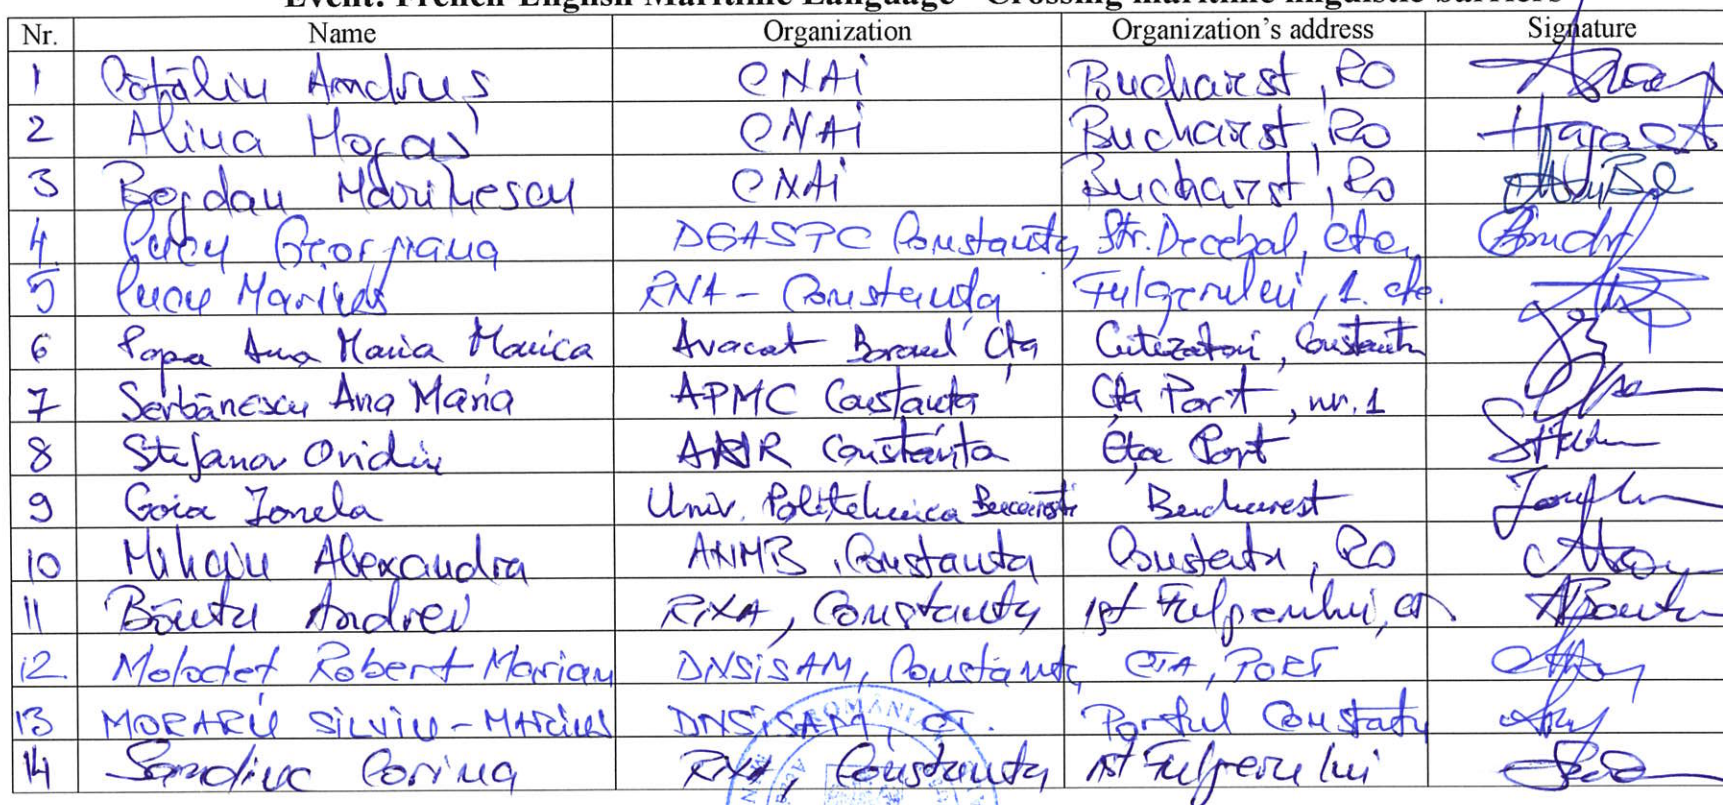 Event: French-English Maritime Language "Crossing maritime linguistic barriers"
Nr. Name Organization Organization's address Signature
1 Cătălin Andrus CNAI Bucharest, RO
2 Alina CNAI Bucharest, RO
3 Bogdan Marinescu CNAI Bucharest, RO
4. Georgiana DGASPC Constanta, Str. Decebal, cta,
5 Marius RNA - Constanta Fulgerului, 1. cta.
6 Popa Ana Maria Monica Avocat Baroul Cta Cutezatori, Constanta
7 Serbănescu Ana Maria APMC Constanta Cta Port, nr. 1
8 Stefanov Ovidiu ANR Constanta Cta Port
9 Goia Ionela Univ. Politehnica Bucuresti Bucharest
10 Mihaiu Alexandra ANMB, Constanta RO
11 Băutu Andrei Constanta Fulgerului,
12. Molodet Robert Marian DNSiSAM, Constanta CTA, PORT
13 MORARIU SILVIU-MARIUS DNSiSAM, CT. Portul Constanta
14 Sandiuc Corina Constanta Fulgerului
ROMANIA